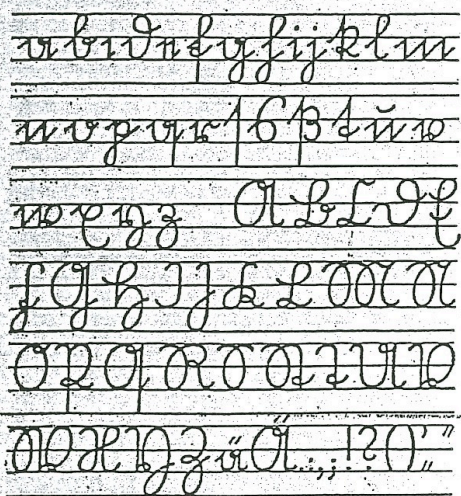 a b c d e f g h i j k l m
n o p q r ſ s ß t u v
w x y z A B C D E
F G H I J K L M N
O P Q R S St T U V
W X Y Z ä Ä . : , ; ! ? ( ) „ "